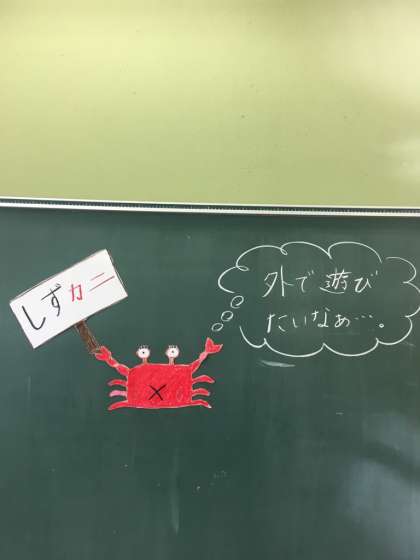 しずカニ
外で遊び
たいなぁ…。